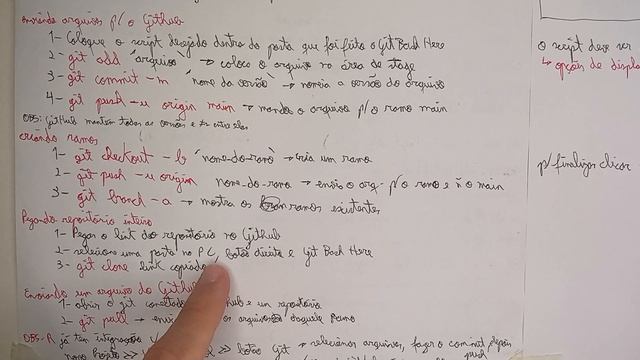 Enviando arquivos p/ o Github
1- Coloque o script desejado dentro da pasta que foi feito o Git Bash Here
2- git add "arquivo" → coloca o arquivo na área de stage
3- git commit -m "nome da versão" → nomeia a versão do arquivo
4- git push -u origin main → manda o arquivo p/ o ramo main
OBS: GitHub mantém todas as versões e ≠s entre elas
Criando ramos
1- git checkout -b "nome-do-ramo" → cria um ramo
2- git push -u origin nome-do-ramo → envia o arq. p/ o ramo e ñ o main
3- git branch -a → mostra os ramos existentes
Pegando repositório inteiro
1- Pegar o link do repositório no Github
2- selecione uma pasta no PC, botão direito e Git Bash Here
3- git clone link copiado
Enviando um arquivo do Github
1- abrir o git conectado
um repositório
2- git pull → os arquivos daquele ramo
OBS: R já tem integração
botão Git → selecionar arquivos, fazer o commit depois
push
o script deve ser
↳ opções de
p/ finalizar clicar